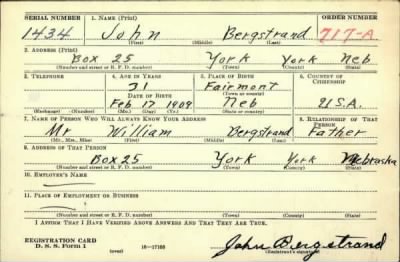 SERIAL NUMBER 1. NAME (Print) ORDER NUMBER
1434 John Bergstrand 717-A
(First) (Middle) (Last)
2. ADDRESS (Print)
Box 25 York York Neb
(Number and street or R. F. D. number) (Town) (County) (State)
3. TELEPHONE 4. AGE IN YEARS 5. PLACE OF BIRTH 6. COUNTRY OF CITIZENSHIP
31 Fairmont
DATE OF BIRTH (Town or county)
Feb 17 1909 Neb U.S.A.
(Exchange) (Number) (Mo.) (Day) (Yr.) (State or country)
7. NAME OF PERSON WHO WILL ALWAYS KNOW YOUR ADDRESS 8. RELATIONSHIP OF THAT PERSON
Mr William Bergstrand Father
(Mr., Mrs., Miss) (First) (Middle) (Last)
9. ADDRESS OF THAT PERSON
Box 25 York York Nebraska
(Number and street or R. F. D. number) (Town) (County) (State)
10. EMPLOYER'S NAME
11. PLACE OF EMPLOYMENT OR BUSINESS
(Number and street or R. F. D. number) (Town) (County) (State)
I AFFIRM THAT I HAVE VERIFIED ABOVE ANSWERS AND THAT THEY ARE TRUE.
REGISTRATION CARD
D. S. S. Form 1 (over) 16—17105 John Bergstrand
(Registrant's signature)